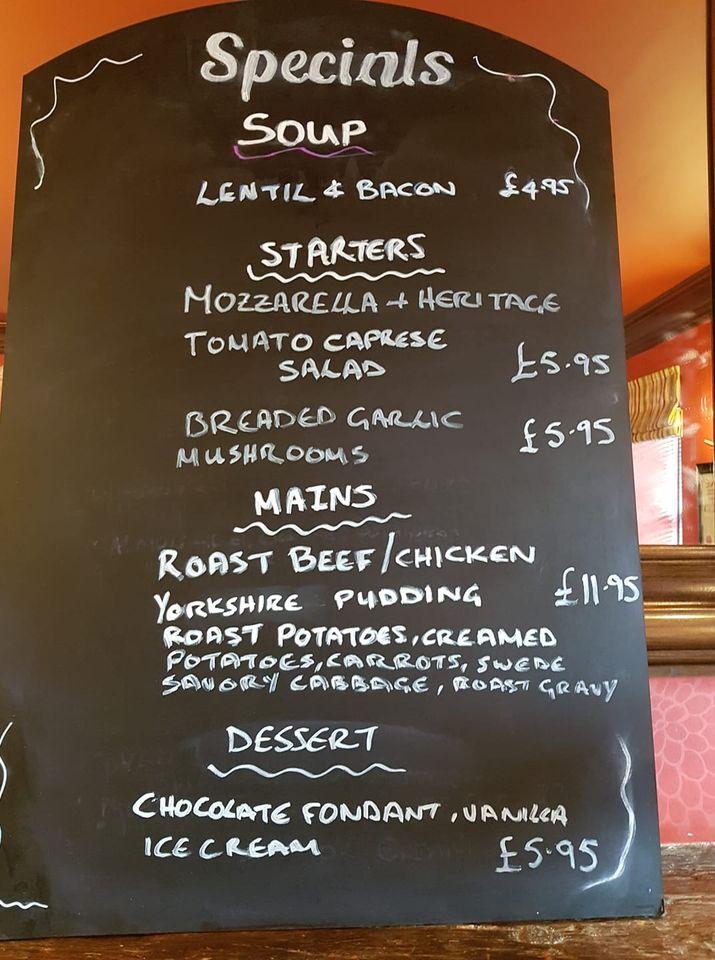 Specials
SOUP
LENTIL & BACON £4.95
STARTERS
MOZZARELLA + HERITAGE
TOMATO CAPRESE
SALAD £5.95
BREADED GARLIC
MUSHROOMS £5.95
MAINS
ROAST BEEF/CHICKEN
YORKSHIRE PUDDING £11.95
ROAST POTATOES, CREAMED
POTATOES, CARROTS, SWEDE
SAVORY CABBAGE, ROAST GRAVY
DESSERT
CHOCOLATE FONDANT, VANILLA
ICE CREAM £5.95